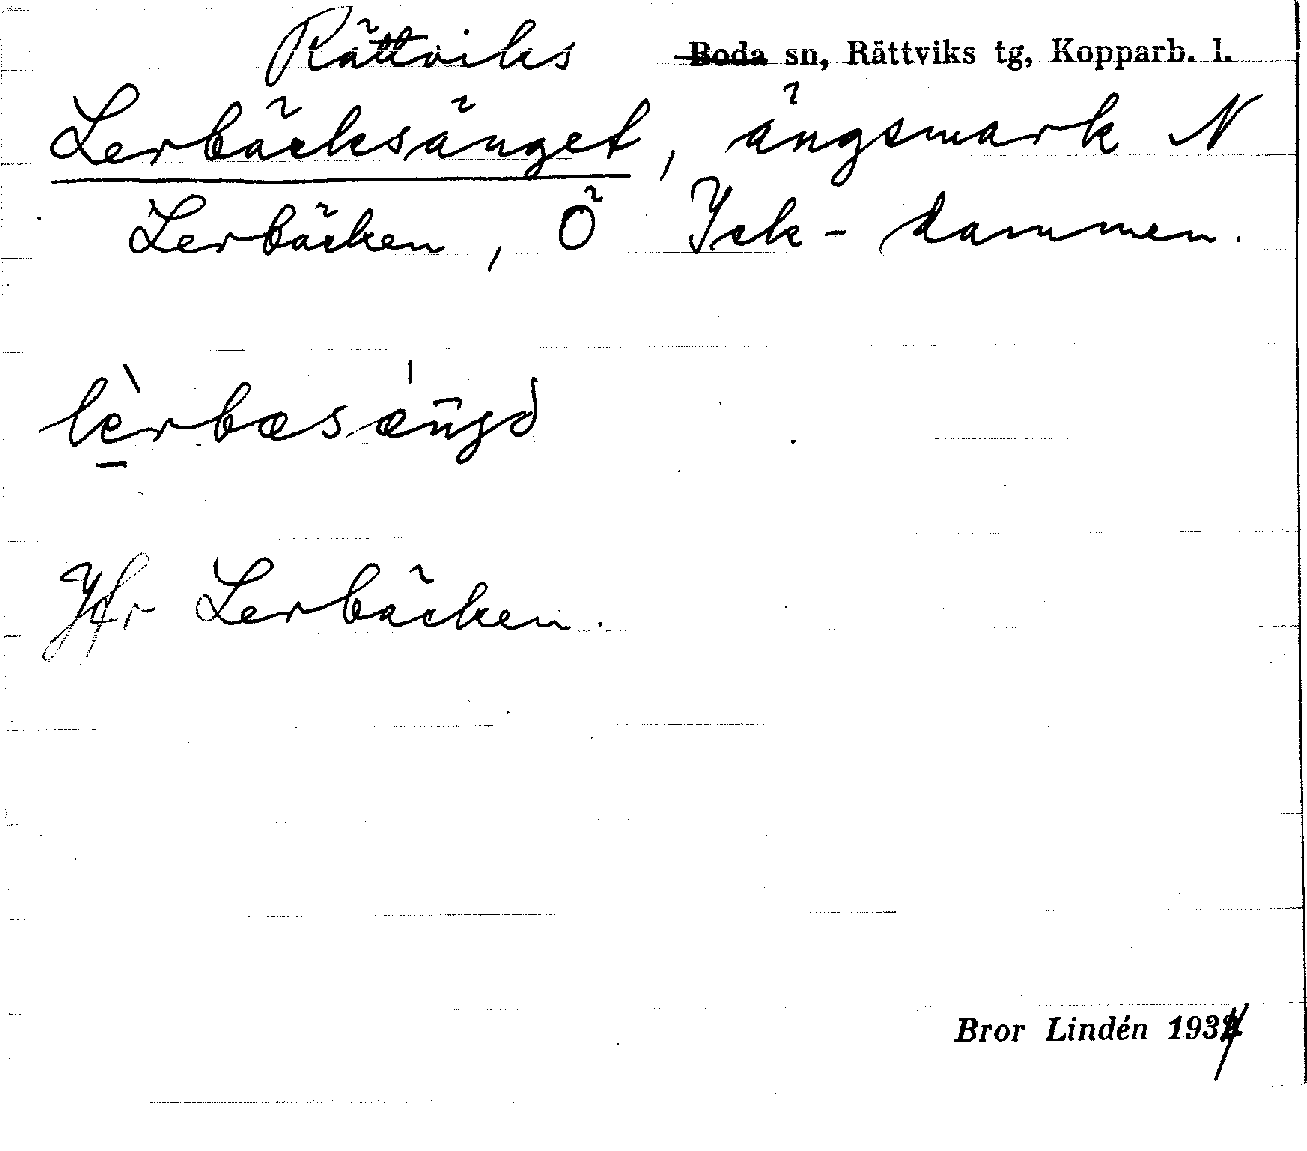 Rättviks Boda sn, Rättviks tg, Kopparb. l.
Lerbäcksänget, ängsmark N
Lerbäcken, Ö Ick-dammen.
lèrbæsæŋgd
Jfr Lerbäcken.
Bror Lindén 193